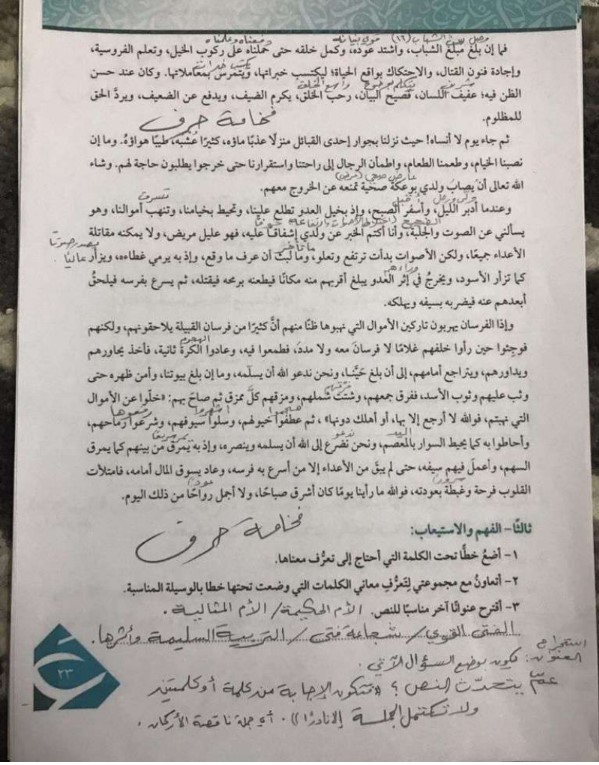 فما إن بلغ مبلغ الشباب، واشتد عوده، وكمل خلقه حتى حملناه على ركوب الخيل، وتعلم الفروسية،
وإجادة فنون القتال، والاحتكاك بواقع الحياة؛ ليكتسب خبراتها، ويتمرس بمعاملاتها. وكان عند حسن
الظن فيه؛ عفيف اللسان، فصيح البيان، رحب الخلق، يكرم الضيف، ويدفع عن الضعيف، ويردّ الحق
للمظلوم.
فخامة حرف
ثم جاء يوم لا أنساه! حيث نزلنا بجوار إحدى القبائل منزلًا عذبًا ماؤه، كثيرًا عُشبه، طيبًا هواؤه. وما إن
نصبنا الخيام، وطعمنا الطعام، واطمأن الرجال إلى راحتنا واستقرارنا حتى خرجوا يطلبون حاجة لهم. وشاء
الله تعالى أن يصاب ولدي بوعكة صحية تمنعه عن الخروج معهم.
وعندما أدبر الليل، وأسفر الصبح، وإذ بخيل العدو تطلع علينا، وتحيط بخيامنا، وتنهب أموالنا، وهو
يسألني عن الصوت والجلبة، وأنا أكتم الخبر عن ولدي إشفاقًا عليه، فهو عليل مريض، ولا يمكنه مقاتلة
الأعداء جميعًا، ولكن الأصوات بدأت ترتفع وتعلو، وما لبث أن عرف ما وقع، وإذ به يرمي غطاءه، ويزأر عاليًا
كما تزأر الأسود، ويخرج في إثر العدو يبلغ أقربهم منه مكانًا فيطعنه برمحه فيقتله، ثم يسرع بفرسه فيلحق
أبعدهم عنه فيضربه بسيفه ويهلكه.
وإذا الفرسان يهربون تاركين الأموال التي نهبوها ظنًا منهم أنّ كثيرًا من فرسان القبيلة يلاحقونهم، ولكنهم
فوجئوا حين رأوا خلفهم غلامًا لا فرسان معه ولا مدد، فطمعوا فيه، وعادوا الكرة ثانية، فأخذ يحاورهم
ويداورهم، ويتراجع أمامهم، إلى أن بلغ حيّنا، ونحن ندعو الله أن يسلّمه، وما إن بلغ بيوتنا، وأمن ظهره حتى
وثب عليهم وثوب الأسد، ففرق جمعهم، وشتت شملهم، ومزقهم كلّ ممزق ثم صاح بهم: «خلّوا عن الأموال
التي نهبتم، فوالله لا أرجع إلا بها، أو أهلك دونها» ، ثم عطفوا خيولهم، وسلّوا سيوفهم، وشرعوا رماحهم،
وأحاطوا به كما يحيط السوار بالمعصم، ونحن نضرع إلى الله أن يسلمه وينصره، وإذ به يمرق من بينهم كما يمرق
السهم، وأعمل فيهم سيفه، حتى لم يبق من الأعداء إلا من أسرع به فرسه، وعاد يسوق المال أمامه، فامتلأت
القلوب فرحة وغبطة بعودته، فوالله ما رأينا يومًا كان أشرق صباحًا، ولا أجمل رواحًا من ذلك اليوم.
فخامة حرف
ثالثًا- الفهم والاستيعاب:
١- أضعُ خطًّا تحت الكلمة التي أحتاج إلى تعرُّف معناها.
٢- أتعاون مع مجموعتي لتَعرُّفِ معاني الكلمات التي وضعت تحتها خطا بالوسيلة المناسبة.
٣- أقترح عنوانًا آخر مناسبًا للنص. الأم الحكيمة / الأم المثالية .
الفتى القوي / شجاعة فتى / التربية السليمة وأثرها .
استخراج
العنوان : يكون بوضع السؤال الآتي .
عمّ يتحدث النص ؟ ((تكون الإجابة من كلمة أو كلمتين
ولا تكتمل الجملة إلا نادرًا)) . أي جملة ناقصة الأركان .
٢٣